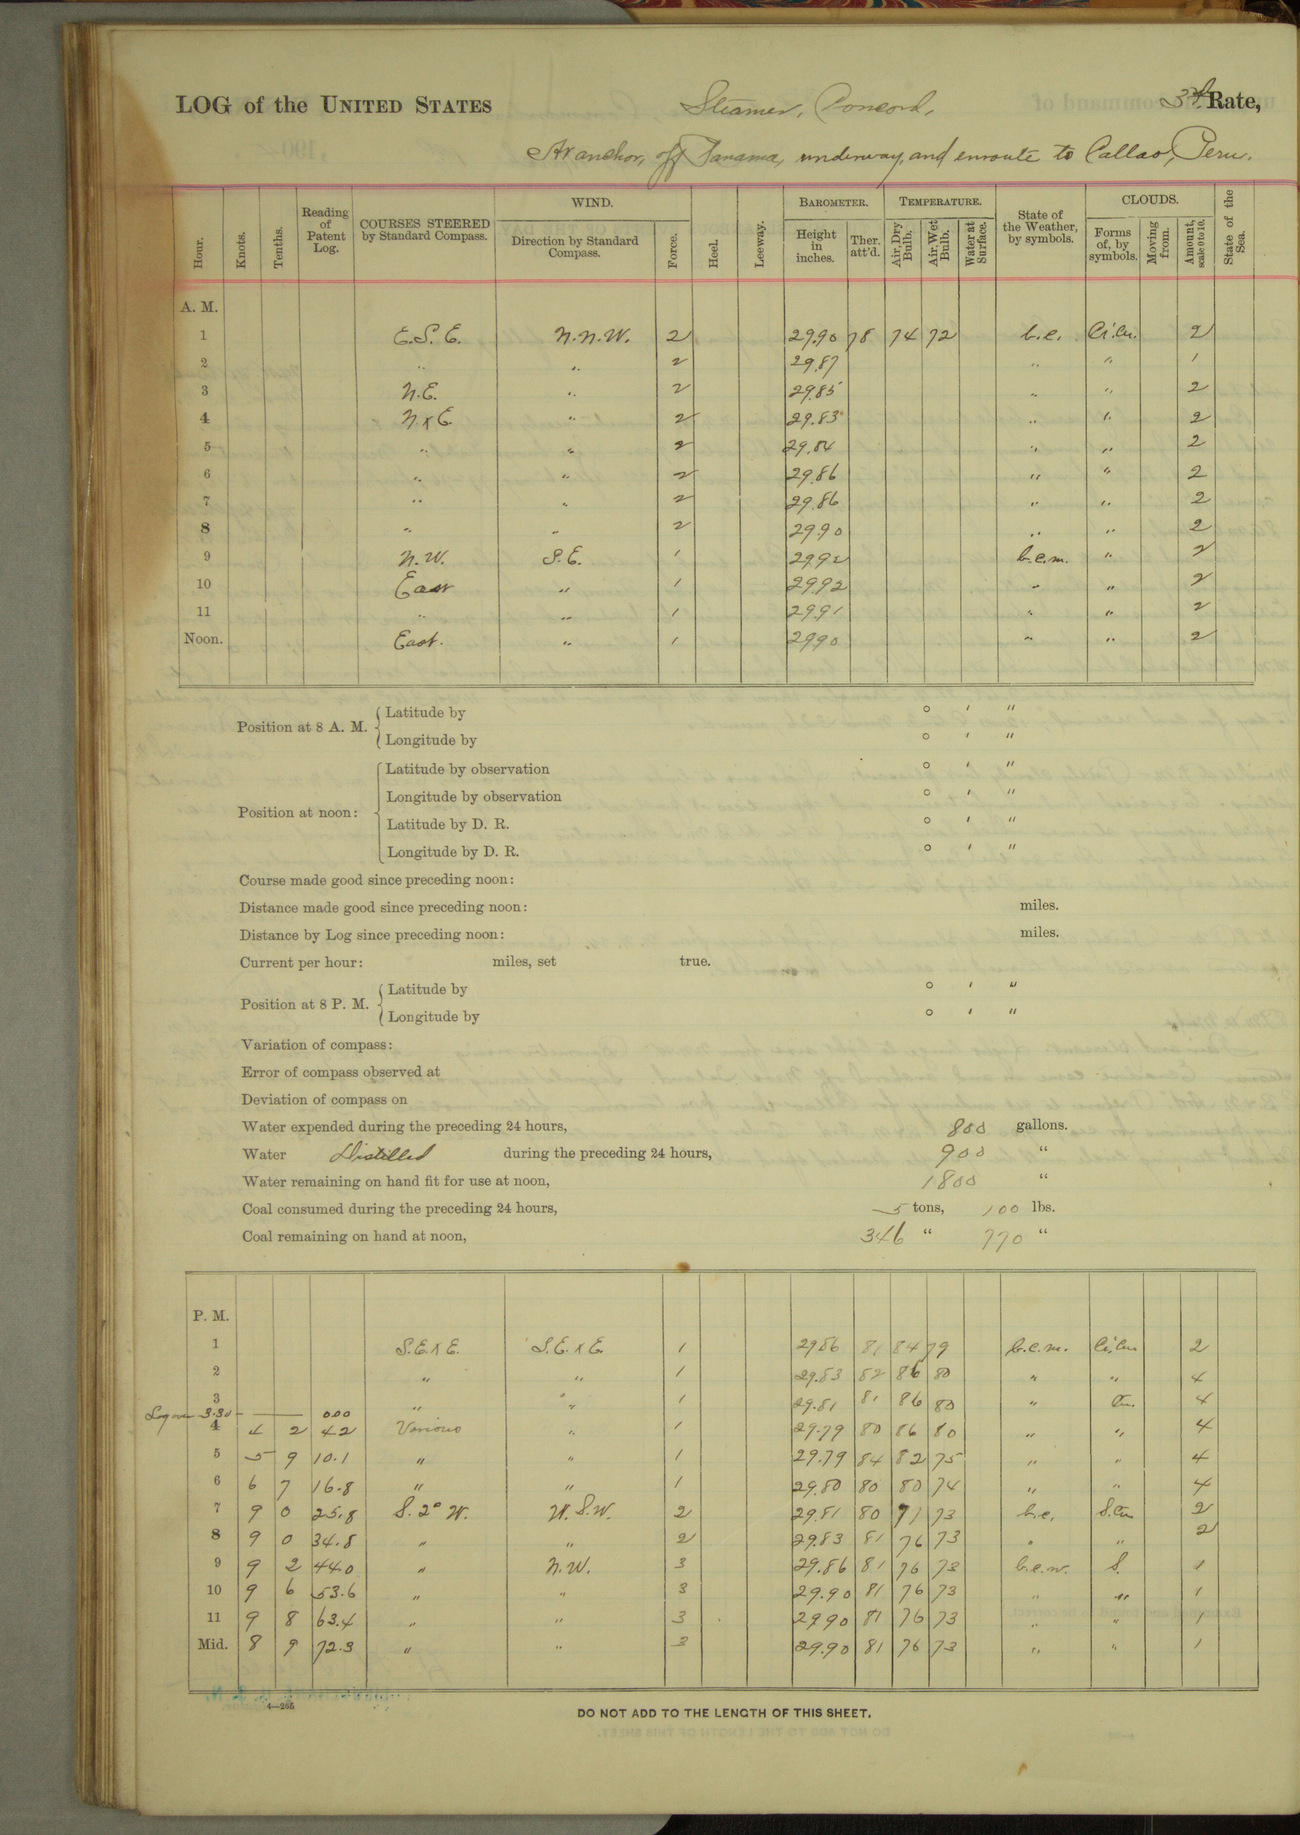 LOG of the UNITED STATES Steamer, Concord, 3d. Rate,
At anchor, off Panama, underway, and enroute to Callao, Peru.
Hour. Knots. Tenths. Reading of Patent Log. COURSES STEERED by Standard Compass. WIND. Direction by Standard Compass. Force. Heel. Leeway. BAROMETER. Height in inches. Ther. att'd. TEMPERATURE. Air, Dry Bulb. Air, Wet Bulb. Water at Surface. State of the Weather, by symbols. CLOUDS. Forms of, by symbols. Moving from. Amount, scale 0 to 10. State of the Sea.
A. M.
1 E.S.E. N.N.W. 2 29.90 78 74 72 b.c. Ci.Cu. 2
2 " " 2 29.87 " " 1
3 N.E. " 2 29.85 " " 2
4 N x E " 2 29.83 " " 2
5 " " 2 29.84 " " 2
6 " " 2 29.86 " " 2
7 " " 2 29.86 " " 2
8 " " 2 29.90 " " 2
9 N.W. S.E. 1 29.92 b.c.m. " 2
10 East " 1 29.92 " " 2
11 " " 1 29.91 " " 2
Noon. East. " 1 29.90 " " 2
Position at 8 A. M. { Latitude by ° ' "
Longitude by ° ' "
Position at noon: { Latitude by observation ° ' "
Longitude by observation ° ' "
Latitude by D. R. ° ' "
Longitude by D. R. ° ' "
Course made good since preceding noon:
Distance made good since preceding noon: miles.
Distance by Log since preceding noon: miles.
Current per hour: miles, set true.
Position at 8 P. M. { Latitude by ° ' "
Longitude by ° ' "
Variation of compass:
Error of compass observed at
Deviation of compass on
Water expended during the preceding 24 hours, 800 gallons.
Water Distilled during the preceding 24 hours, 900 "
Water remaining on hand fit for use at noon, 1800 "
Coal consumed during the preceding 24 hours, 5 tons, 100 lbs.
Coal remaining on hand at noon, 346 " 770 "
P. M.
1 S.E. x E. S.E. x E. 1 29.86 81 84 79 b.c.m. Ci.Cu 2
2 " " 1 29.83 82 86 80 " " 4
3 " " 1 29.81 81 86 80 " Cu. 4
Log over 3.30 — 0.00
4 4 2 4.2 Various " 1 29.79 80 86 80 " " 4
5 5 9 10.1 " " 1 29.79 84 82 75 " " 4
6 6 7 16.8 " " 1 29.80 80 80 74 " " 4
7 9 0 25.8 S. 2° W. W.S.W. 2 29.81 80 71 73 b.c. S.Cu 2
8 9 0 34.8 " " 2 29.83 81 76 73 " " 2
9 9 2 44.0 " N.W. 3 29.86 81 76 73 b.c.w. S. 1
10 9 6 53.6 " " 3 29.90 81 76 73 " " 1
11 9 8 63.4 " " 3 29.90 81 76 73 " " 1
Mid. 8 9 72.3 " " 3 29.90 81 76 73 " " 1
4—265
DO NOT ADD TO THE LENGTH OF THIS SHEET.